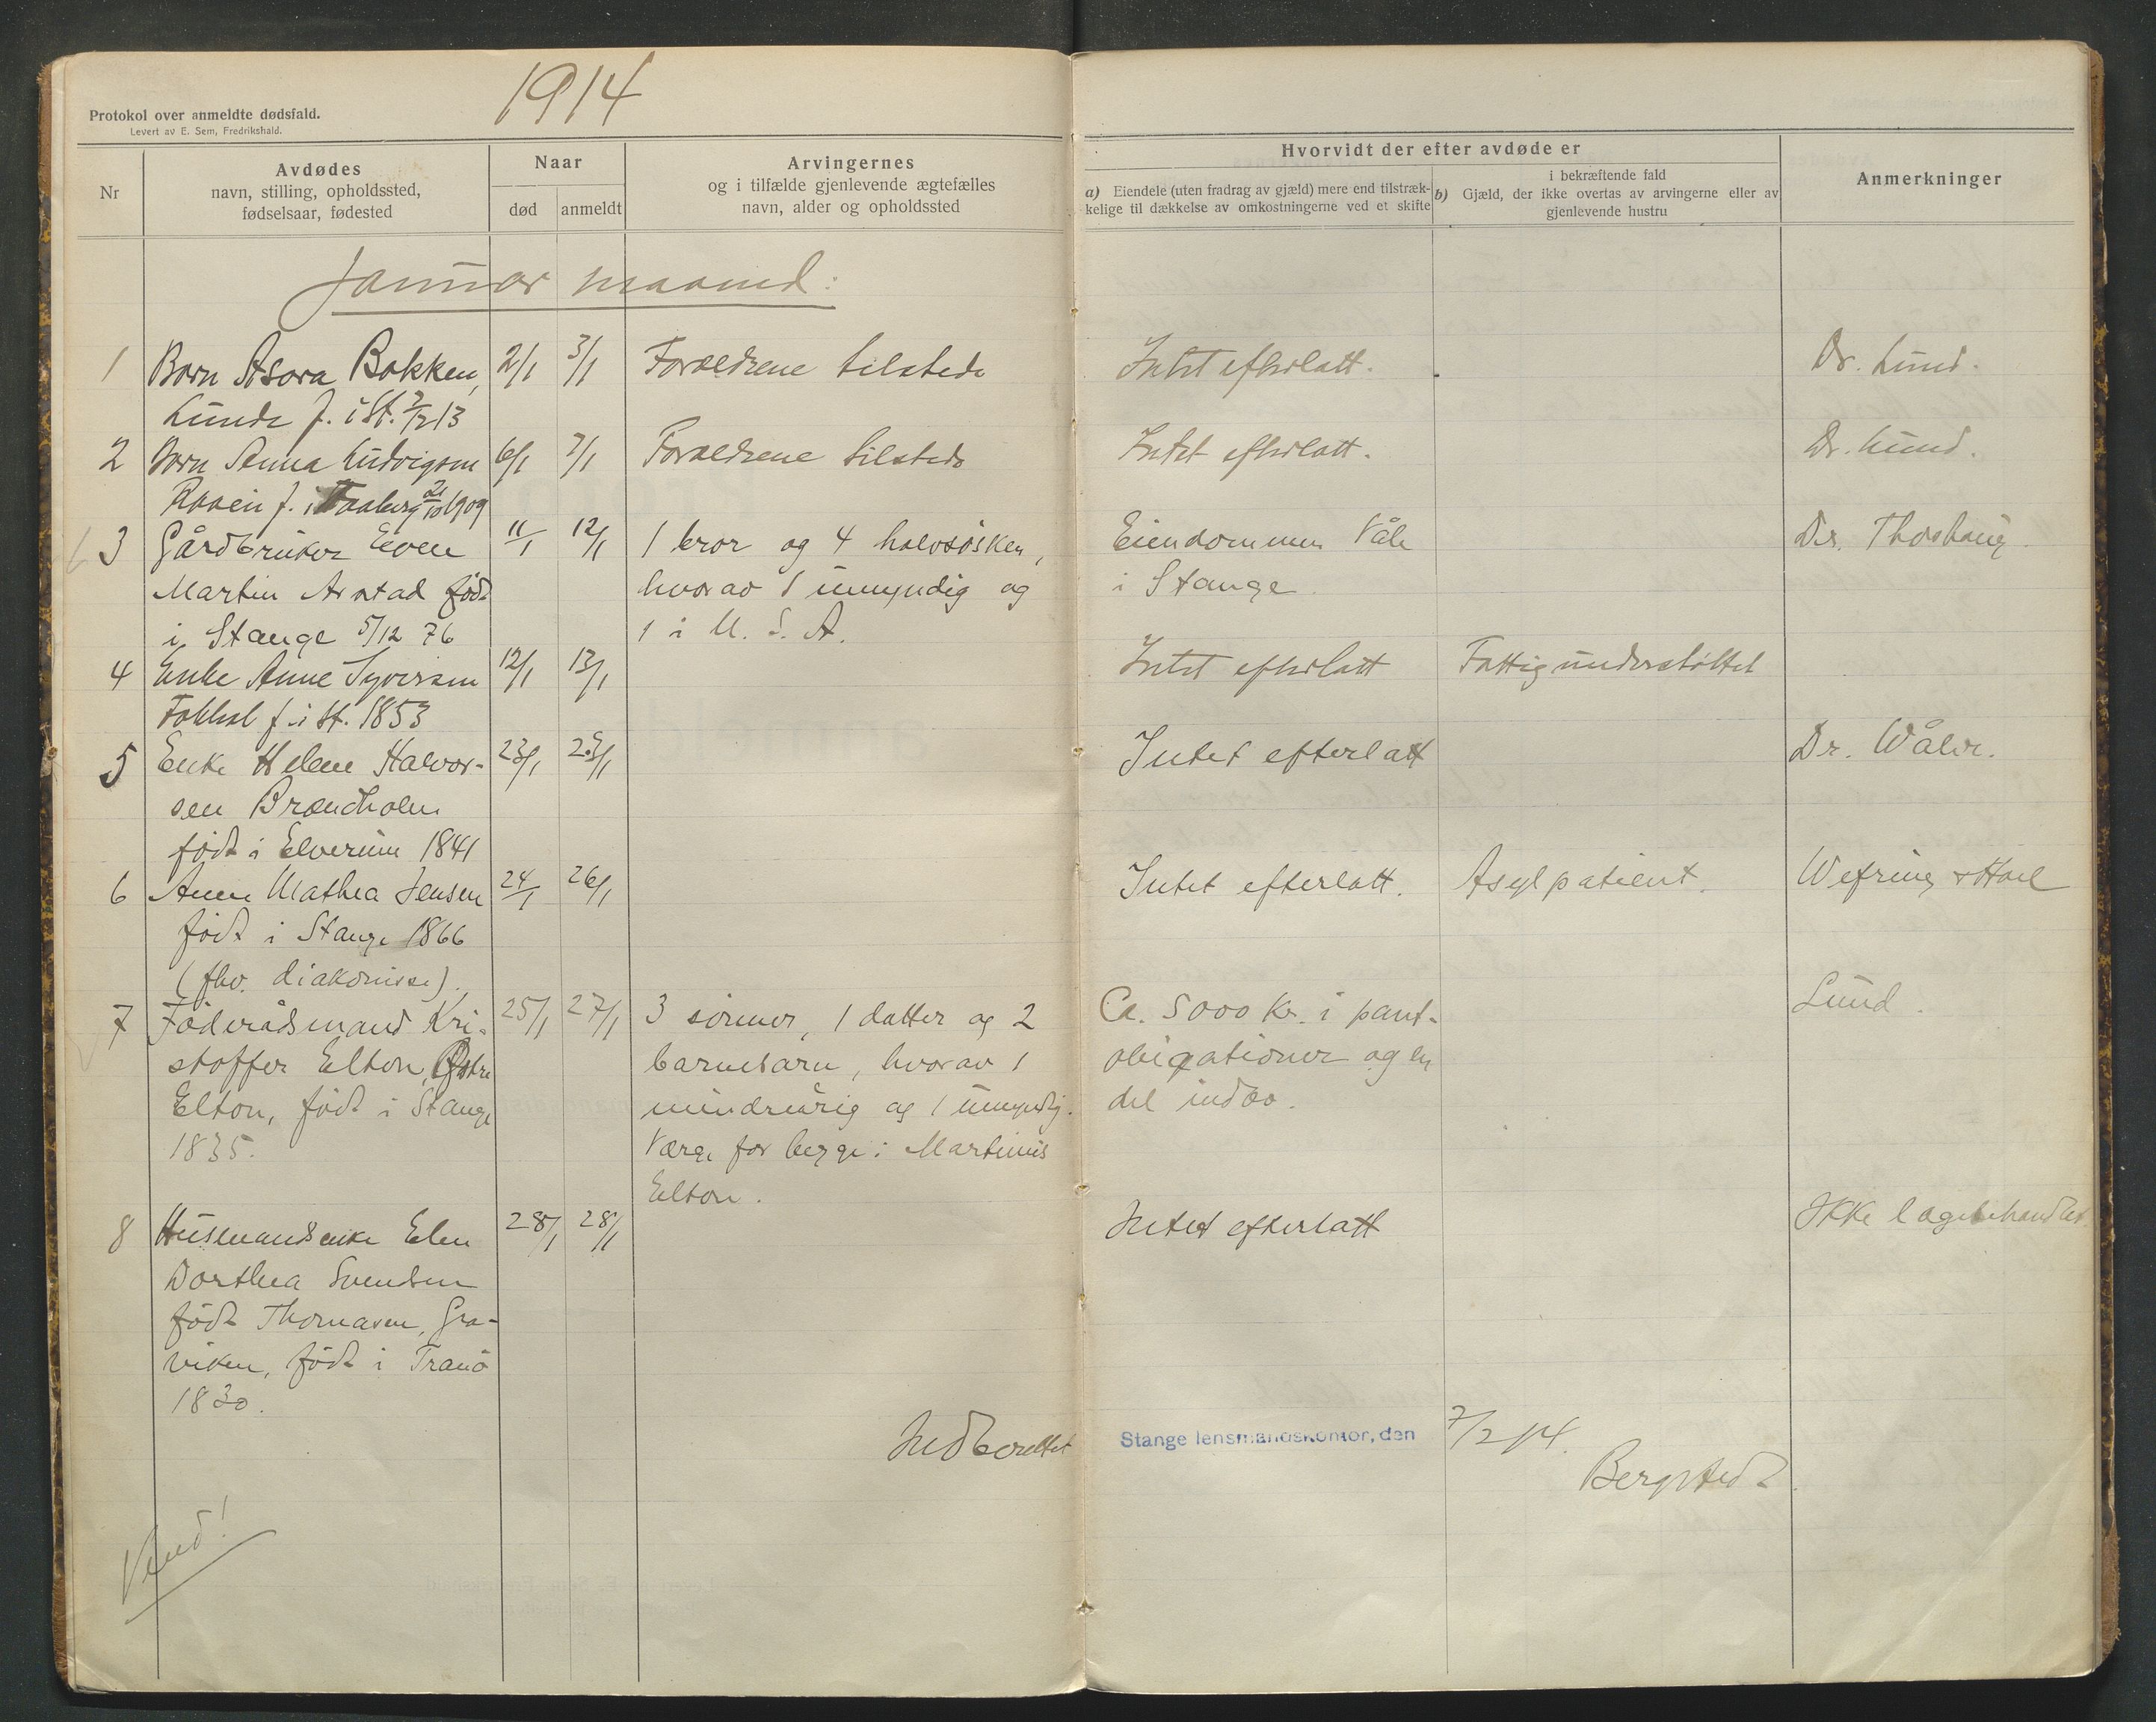 1914
Protokol over anmeldte dødsfald.
Levert av E. Sem, Fredrikshald.
Nr
Avdødes
navn, stilling, opholdssted,
fødselsaar, fødested
Naar
død anmeldt
Arvingernes
og i tilfælde gjenlevende ægtefælles
navn, alder og opholdssted
Hvorvidt der efter avdøde er
a) Eiendele (uten fradrag av gjæld) mere end tilstræk-
kelige til dækkelse av omkostningerne ved et skifte
i bekræftende fald
b) Gjæld, der ikke overtas av arvingerne eller av
gjenlevende hustru
Anmerkninger
Januar maaned:
1 Barn Asora Bakken, 2/1 3/1 Foreldrene tilstede Intet efterlatt. Dr. Lund.
Lunde f. i St. 13
2 Barn Anna Ludvigsen 6/1 7/1 Foreldrene tilstede Intet efterlatt. Dr. Lund.
f. i Faaberg 21/10 1909
3 Gårdbruker Even 11/1 12/1 1 bror og 4 halvsøsken, Eiendommen Våle Dr. Thorshaug.
Martin Arstad født hvorav 1 umyndig og i Stange
i Stange 5/12 76 1 i U. S. A.
4 Enke Anne Syversen 12/1 13/1 Intet efterlatt Fattigunderstøttet
f. i St. 1853
5 Enke Helene Halvor- 23/1 25/1 Intet efterlatt Dr. Wåler.
sen Brændholen
født i Elverum 1841
6 Anne Mathea Jensen 24/1 26/1 Intet efterlatt. Asylpatient. Wefring
født i Stange 1866
(fhv. diakonisse).
7 Føderådsmand Kri- 25/1 27/1 3 sønner, 1 datter og 2 Ca. 5000 Kr. i pant- Lund.
stoffer Elton, Østre barnebarn, hvorav 1 obligationer og en
Elton, født i Stange mindreårig og 1 umyndig. del indbo.
1835. Værge for begge: Martinus
Elton.
8 Husmandsenke Elen 28/1 28/1 Intet efterlatt Ikke lægebehandlet.
Dorthea Svendsen
født Thomasen, Gra-
viken, født i Tranø
1830.
Indberettet Stange lensmandskontor, den 7/2 14.
Bergsted
Vend!